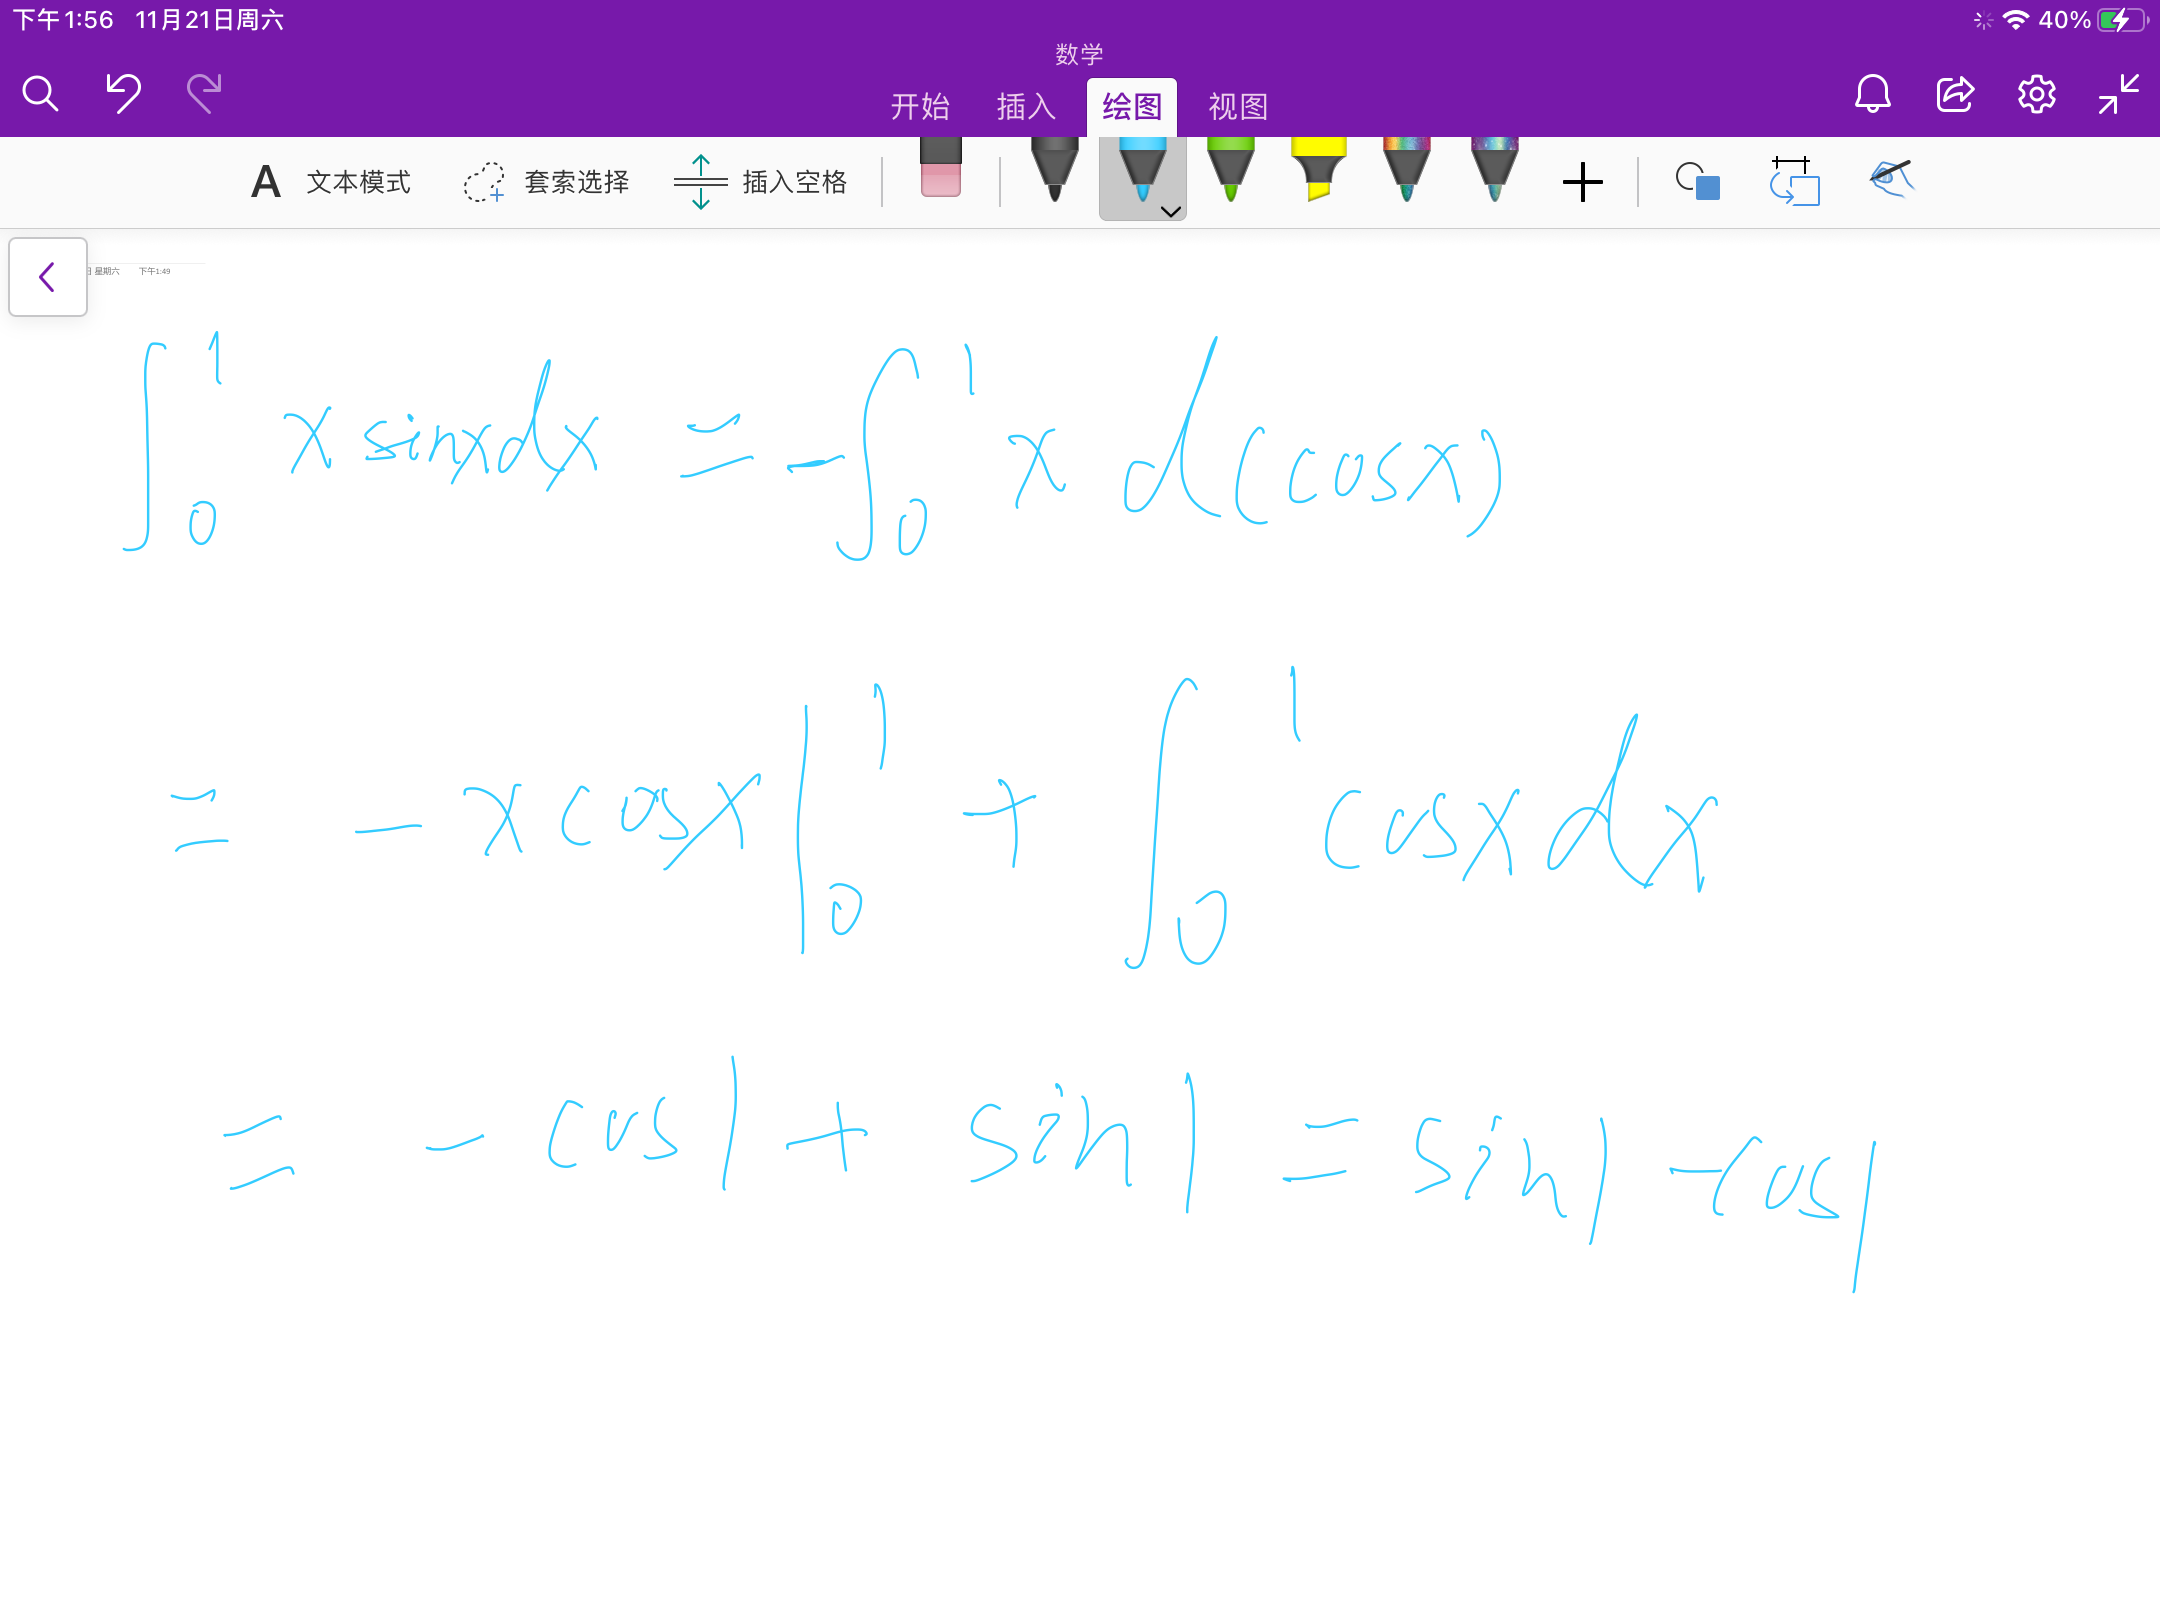 下午1:56 11月21日周六 40%
数学
开始 插入 绘图 视图
A 文本模式 套索选择 插入空格
日 星期六 下午1:49
∫₀¹ x sinx dx = -∫₀¹ x d(cosx)
= -x cosx |₀¹ + ∫₀¹ cosx dx
= -cos1 + sin1 = sin1 - cos1